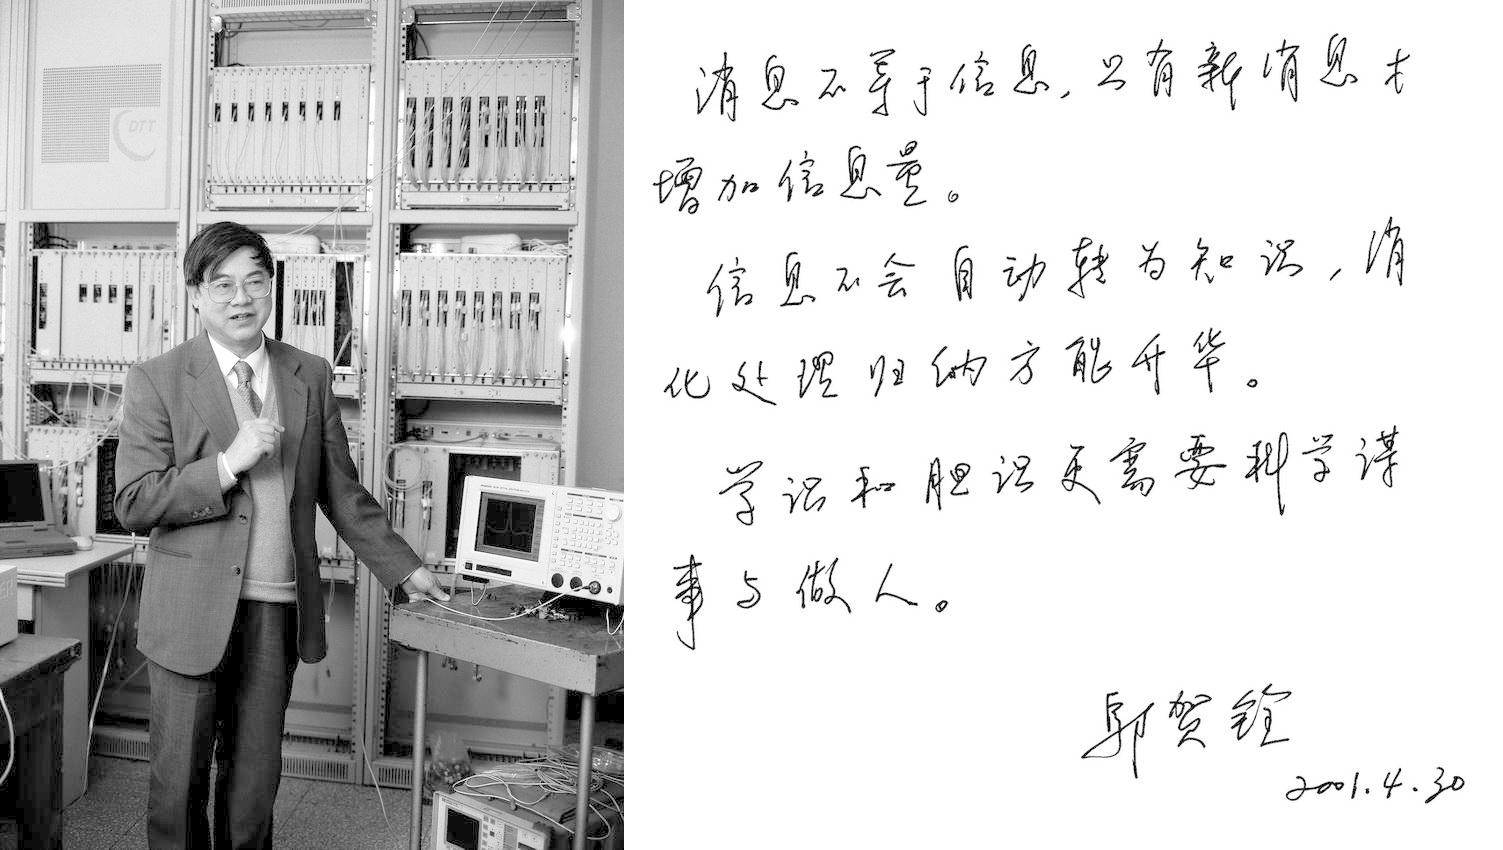 DTT
消息不等于信息，只有新消息才
增加信息量。
信息不会自动转为知识，消
化处理归纳方能升华。
学识和胆识更需要科学谋
事与做人。
邬贺铨
2001.4.30